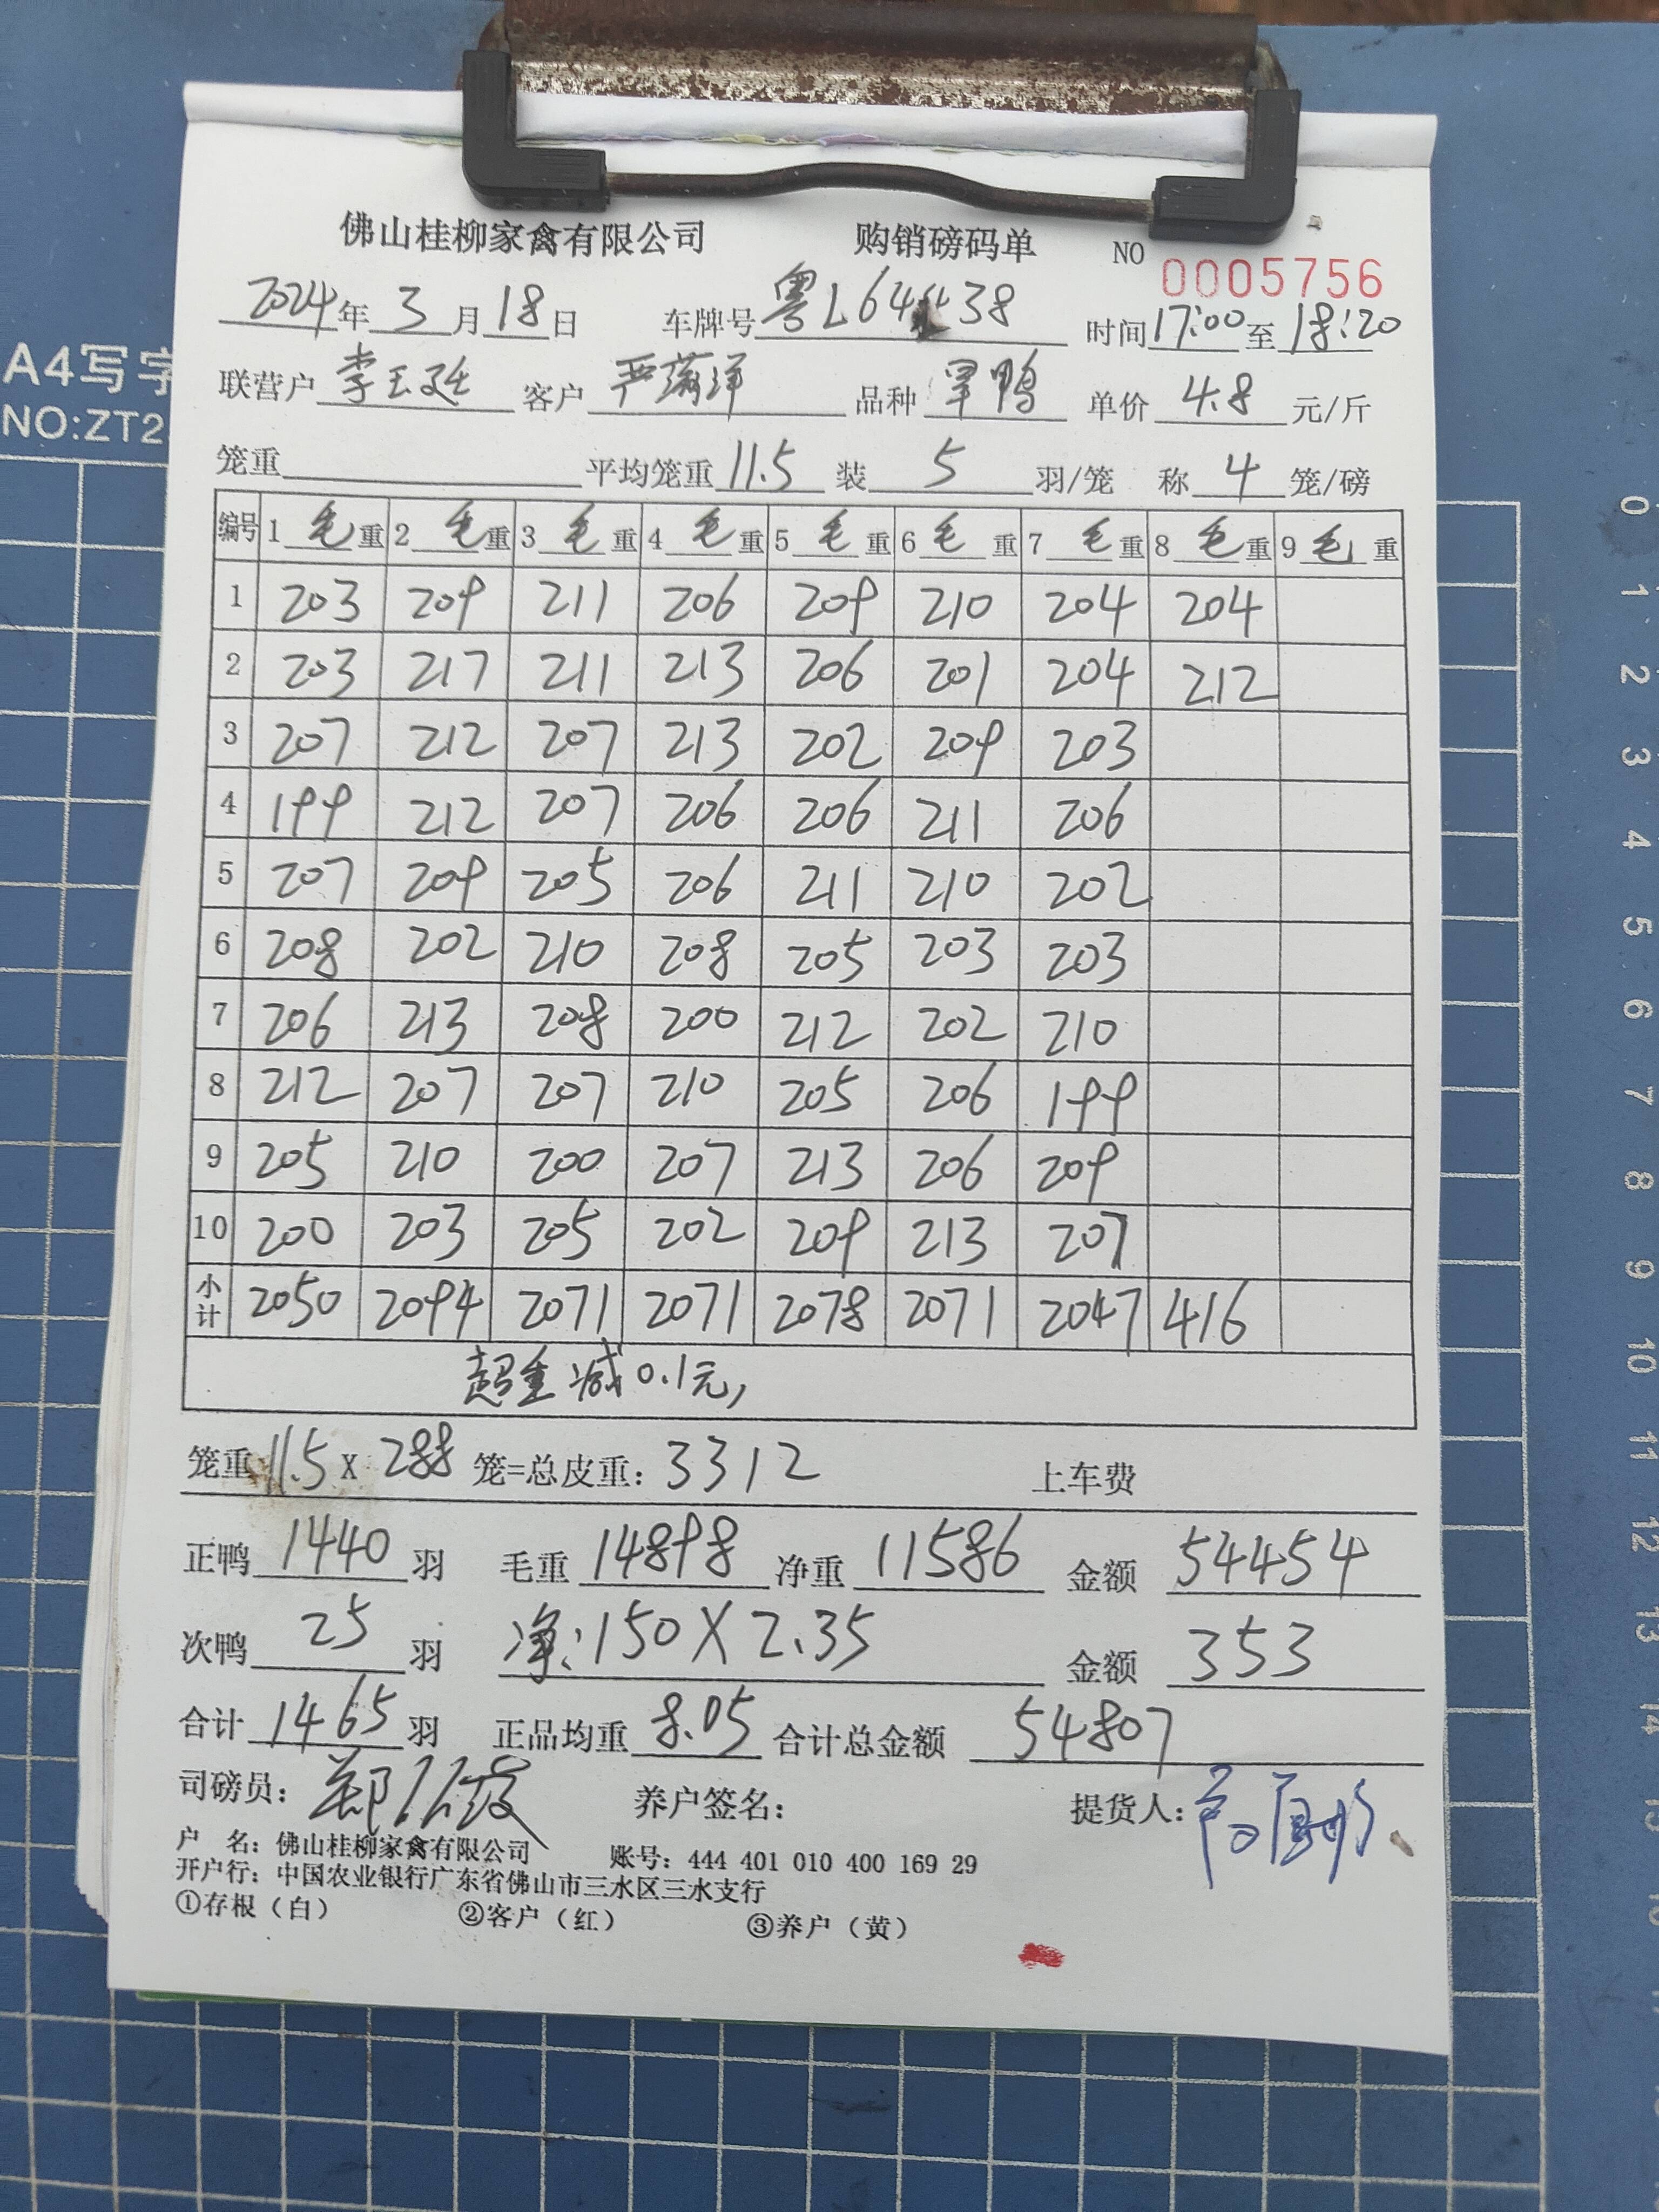 佛山桂柳家禽有限公司 购销磅码单 NO 0005756
2024年3月18日 车牌号 粤L64438 时间17:00至18:20
A4写字
联营户 李玉廷 客户 品种 旱鸭 单价 4.8 元/斤
NO:ZT2
笼重 平均笼重 11.5 装 5 羽/笼 称 4 笼/磅
编号 1毛重 2毛重 3毛重 4毛重 5毛重 6毛重 7毛重 8毛重 9毛重
1 203 209 211 206 209 210 204 204
2 203 217 211 213 206 201 204 212
3 207 212 207 213 202 209 203
4 199 212 207 206 206 211 206
5 207 209 205 206 211 210 202
6 208 202 210 208 205 203 203
7 206 213 208 200 212 202 210
8 212 207 207 210 205 206 199
9 205 210 200 207 213 206 209
10 200 203 205 202 209 213 207
小计 2050 2094 2071 2071 2078 2071 2047 416
超重减0.1元,
笼重11.5X288笼=总皮重:3312 上车费
正鸭1440羽 毛重14898 净重11586 金额54454
次鸭25羽 净:150X2.35 金额353
合计1465羽 正品均重8.05 合计总金额54807
司磅员: 郑 养户签名: 提货人:
户 名:佛山桂柳家禽有限公司 账号:444 401 010 400 169 29
开户行:中国农业银行广东省佛山市三水区三水支行
①存根(白) ②客户(红) ③养户(黄)
0
1
2
3
4
5
6
7
8
9
10
11
12
13
14
15